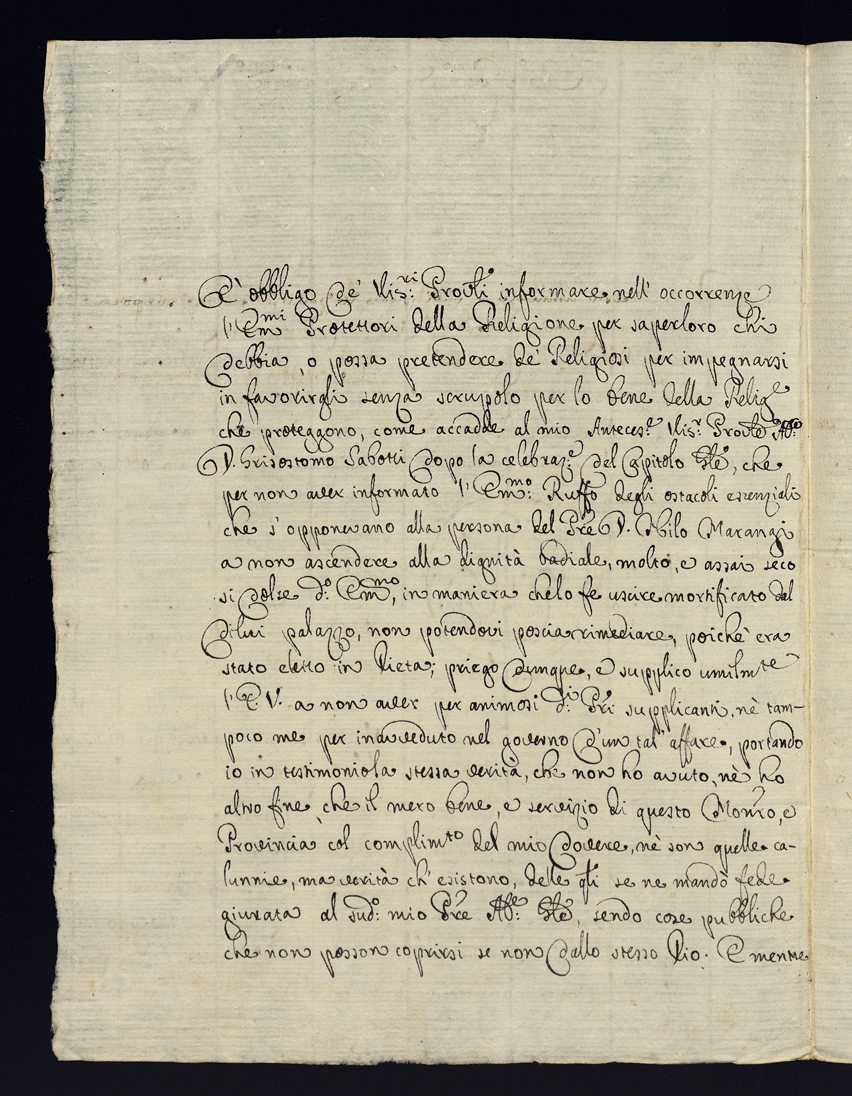 E' obbligo de' Vis:ri Prov:li informare nell' occorrenze
l'Em:mi Protettori della Religione per saperloro chi
debbia, o possa pretendere de' Religiosi per impegnarsi
in favorirgli senza scrupolo per lo bene della Relig:e
che proteggono, come accadde al mio Anteces:re Vis:r Prov:le Ab:te
D. Grisostomo Sabotti dopo la celebraz:e del Capitolo Gle, che
per non aver informato l'Em:mo Ruffo degli ostacoli essenziali
che s'opponevano alla persona del Pre D. Nilo Marangi
a non ascendere alla dignità badiale, molto, e assai seco
si dolse d:o Em:mo, in maniera chelo fe uscire mortificato dal
dilui palazzo, non potendovi posciarrimediare, poiche era
stato eletto in Dieta; priego dunque, e supplico umilmte
l'E. V. a non aver per animosi d:i Pri supplicanti, nè tam-
poco me per inavveduto nel governo d'un tal' affare, portando
io in testimoniola stessa verità, che non ho avuto, nè ho
altro fine, che il mero bene, e servizio di questo Monro, e
Provincia col complimto del mio dovere, nè son quelle ca-
lunnie, ma verità ch' esistono, delle qli se ne mandò fede
giurata al sud:o mio Pre Ab:e Gle, sendo cose pubbliche
che non posson coprirsi se non dallo stesso Dio. E mentre